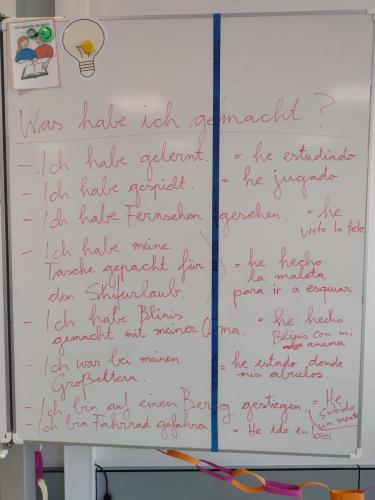 Was habe ich gemacht?
- Ich habe gelernt. = he estudiado
- Ich habe gespielt. = he jugado
- Ich habe Fernsehen gesehen. = he
visto la tele
- Ich habe meine
Tasche gepackt für
den Skiurlaub.
= he hecho
la maleta
para ir a esquiar
- Ich habe Blinis
gemacht mit meiner Oma.
= he hecho
Blinis con mi
amama
- Ich war bei meinen
Großeltern.
= he estado donde
mis abuelos
- Ich bin auf einen Berg gestiegen. = He
subido
un monte
- Ich bin Fahrrad gefahren = He ido en bici